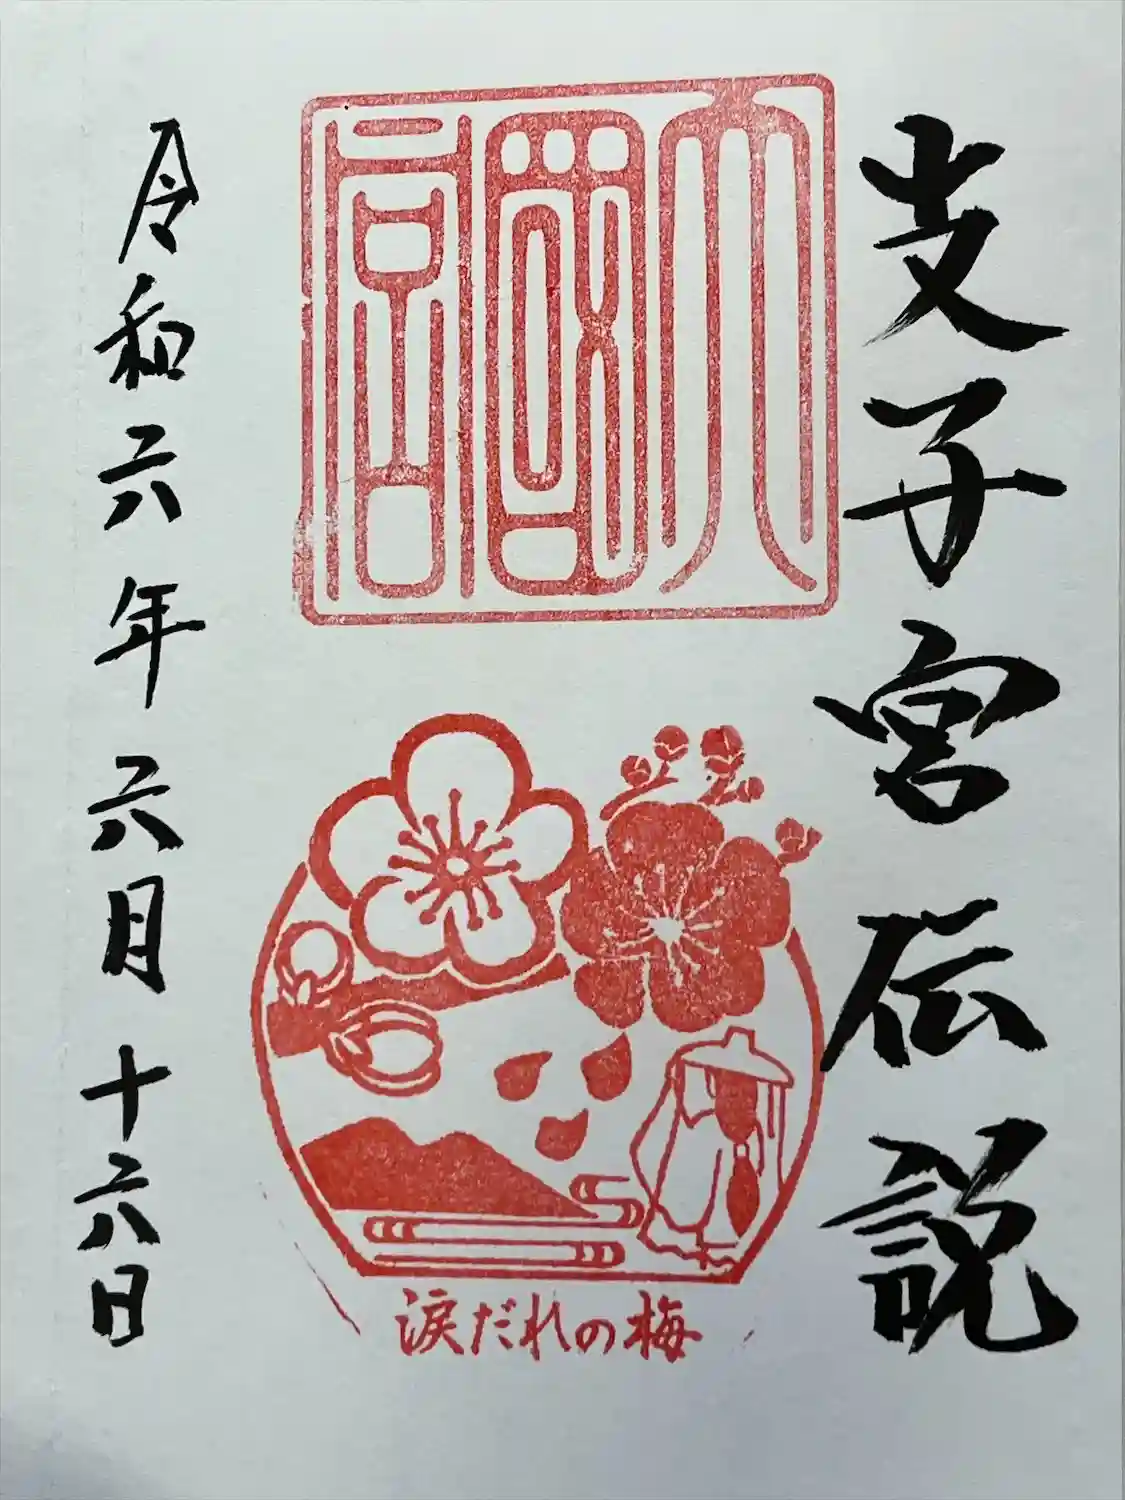 支子宮伝説
涙だれの梅
令和六年六月十六日